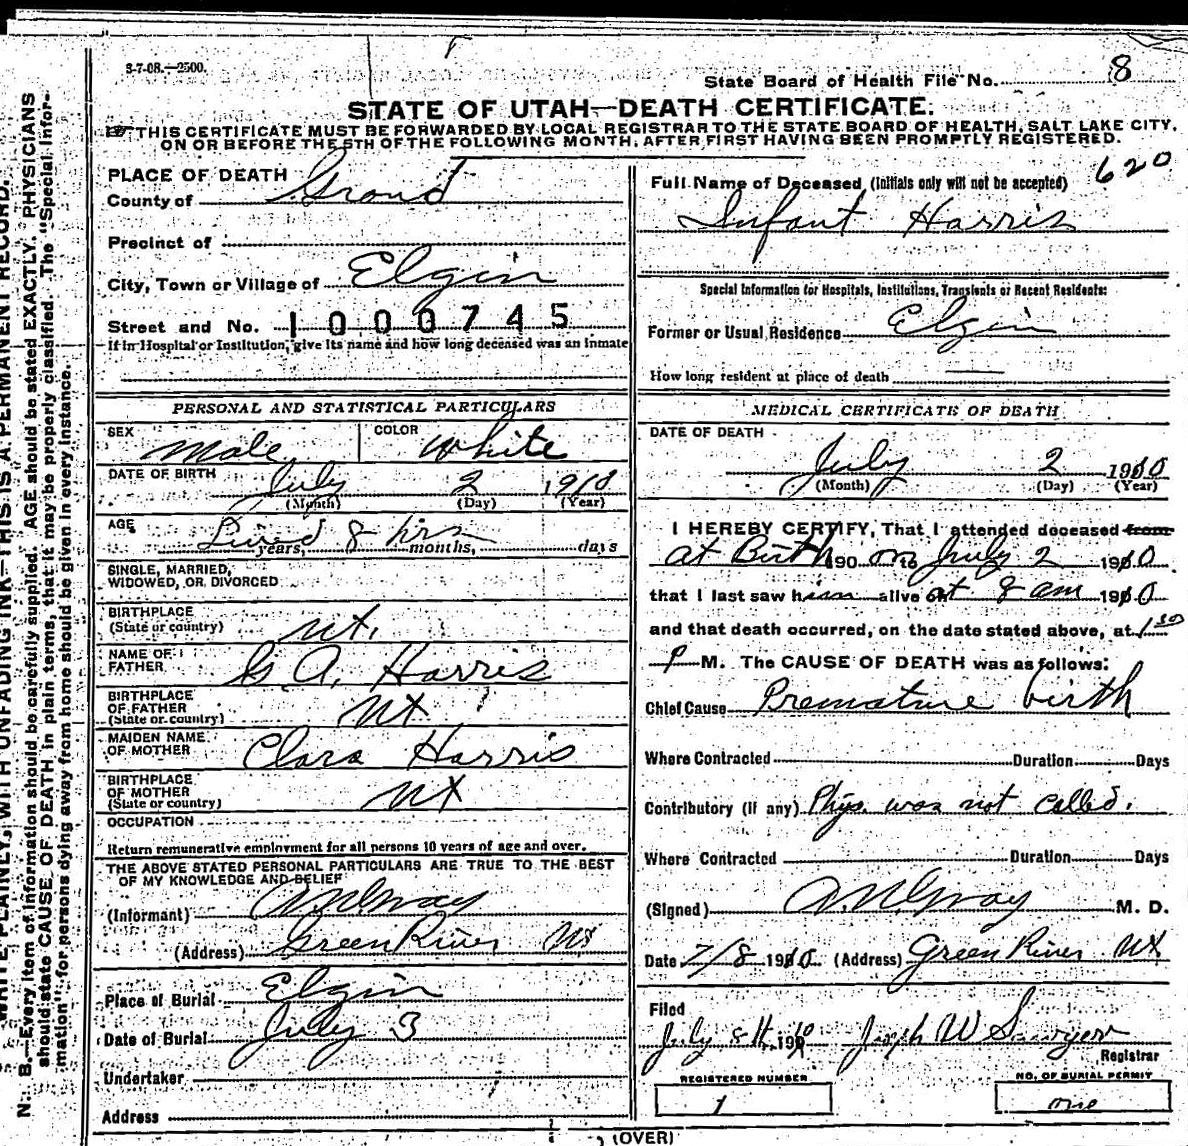 3-7-08.—2500.
State Board of Health File No. 8
STATE OF UTAH—DEATH CERTIFICATE.
THIS CERTIFICATE MUST BE FORWARDED BY LOCAL REGISTRAR TO THE STATE BOARD OF HEALTH, SALT LAKE CITY,
ON OR BEFORE THE 5TH OF THE FOLLOWING MONTH, AFTER FIRST HAVING BEEN PROMPTLY REGISTERED.
PLACE OF DEATH
County of Grand
Precinct of
City, Town or Village of Elgin
Street and No. 1000745
If in Hospital or Institution, give its name and how long deceased was an inmate
PERSONAL AND STATISTICAL PARTICULARS
SEX Male COLOR White
DATE OF BIRTH July 2 1910
(Month) (Day) (Year)
AGE Lived 8 hrs
years, months, days
SINGLE, MARRIED,
WIDOWED, OR DIVORCED
BIRTHPLACE
(State or country) Ut.
NAME OF
FATHER G. A. Harris
BIRTHPLACE
OF FATHER
(State or country) Ut
MAIDEN NAME
OF MOTHER Clara Harris
BIRTHPLACE
OF MOTHER
(State or country) Ut
OCCUPATION
Return remunerative employment for all persons 10 years of age and over.
THE ABOVE STATED PERSONAL PARTICULARS ARE TRUE TO THE BEST
OF MY KNOWLEDGE AND BELIEF
(Informant)
(Address) Green River Ut
Place of Burial Elgin
Date of Burial July 3
Undertaker
Address
620
Full Name of Deceased (Initials only will not be accepted)
Infant Harris
Special Information for Hospitals, Institutions, Transients or Recent Residents:
Former or Usual Residence Elgin
How long resident at place of death
MEDICAL CERTIFICATE OF DEATH
DATE OF DEATH
July 2 1910
(Month) (Day) (Year)
I HEREBY CERTIFY, That I attended deceased from
at Birth 190 on to July 2 1910
that I last saw him alive on at 8 am 1910
and that death occurred, on the date stated above, at 1 30
P M. The CAUSE OF DEATH was as follows:
Chief Cause Premature birth
Where Contracted Duration Days
Contributory (if any) Phys. was not called.
Where Contracted Duration Days
(Signed) M. D.
Date 7/8 1910 (Address) Green River Ut
Filed
July 8th 1910 Joseph W Sawyer
Registrar
REGISTERED NUMBER
1
NO. OF BURIAL PERMIT
one
(OVER)
WRITE PLAINLY, WITH UNFADING INK—THIS IS A PERMANENT RECORD.
N. B.—Every item of information should be carefully supplied. AGE should be stated EXACTLY. PHYSICIANS
should state CAUSE OF DEATH in plain terms, that it may be properly classified. The "Special Infor-
mation" for persons dying away from home should be given in every instance.